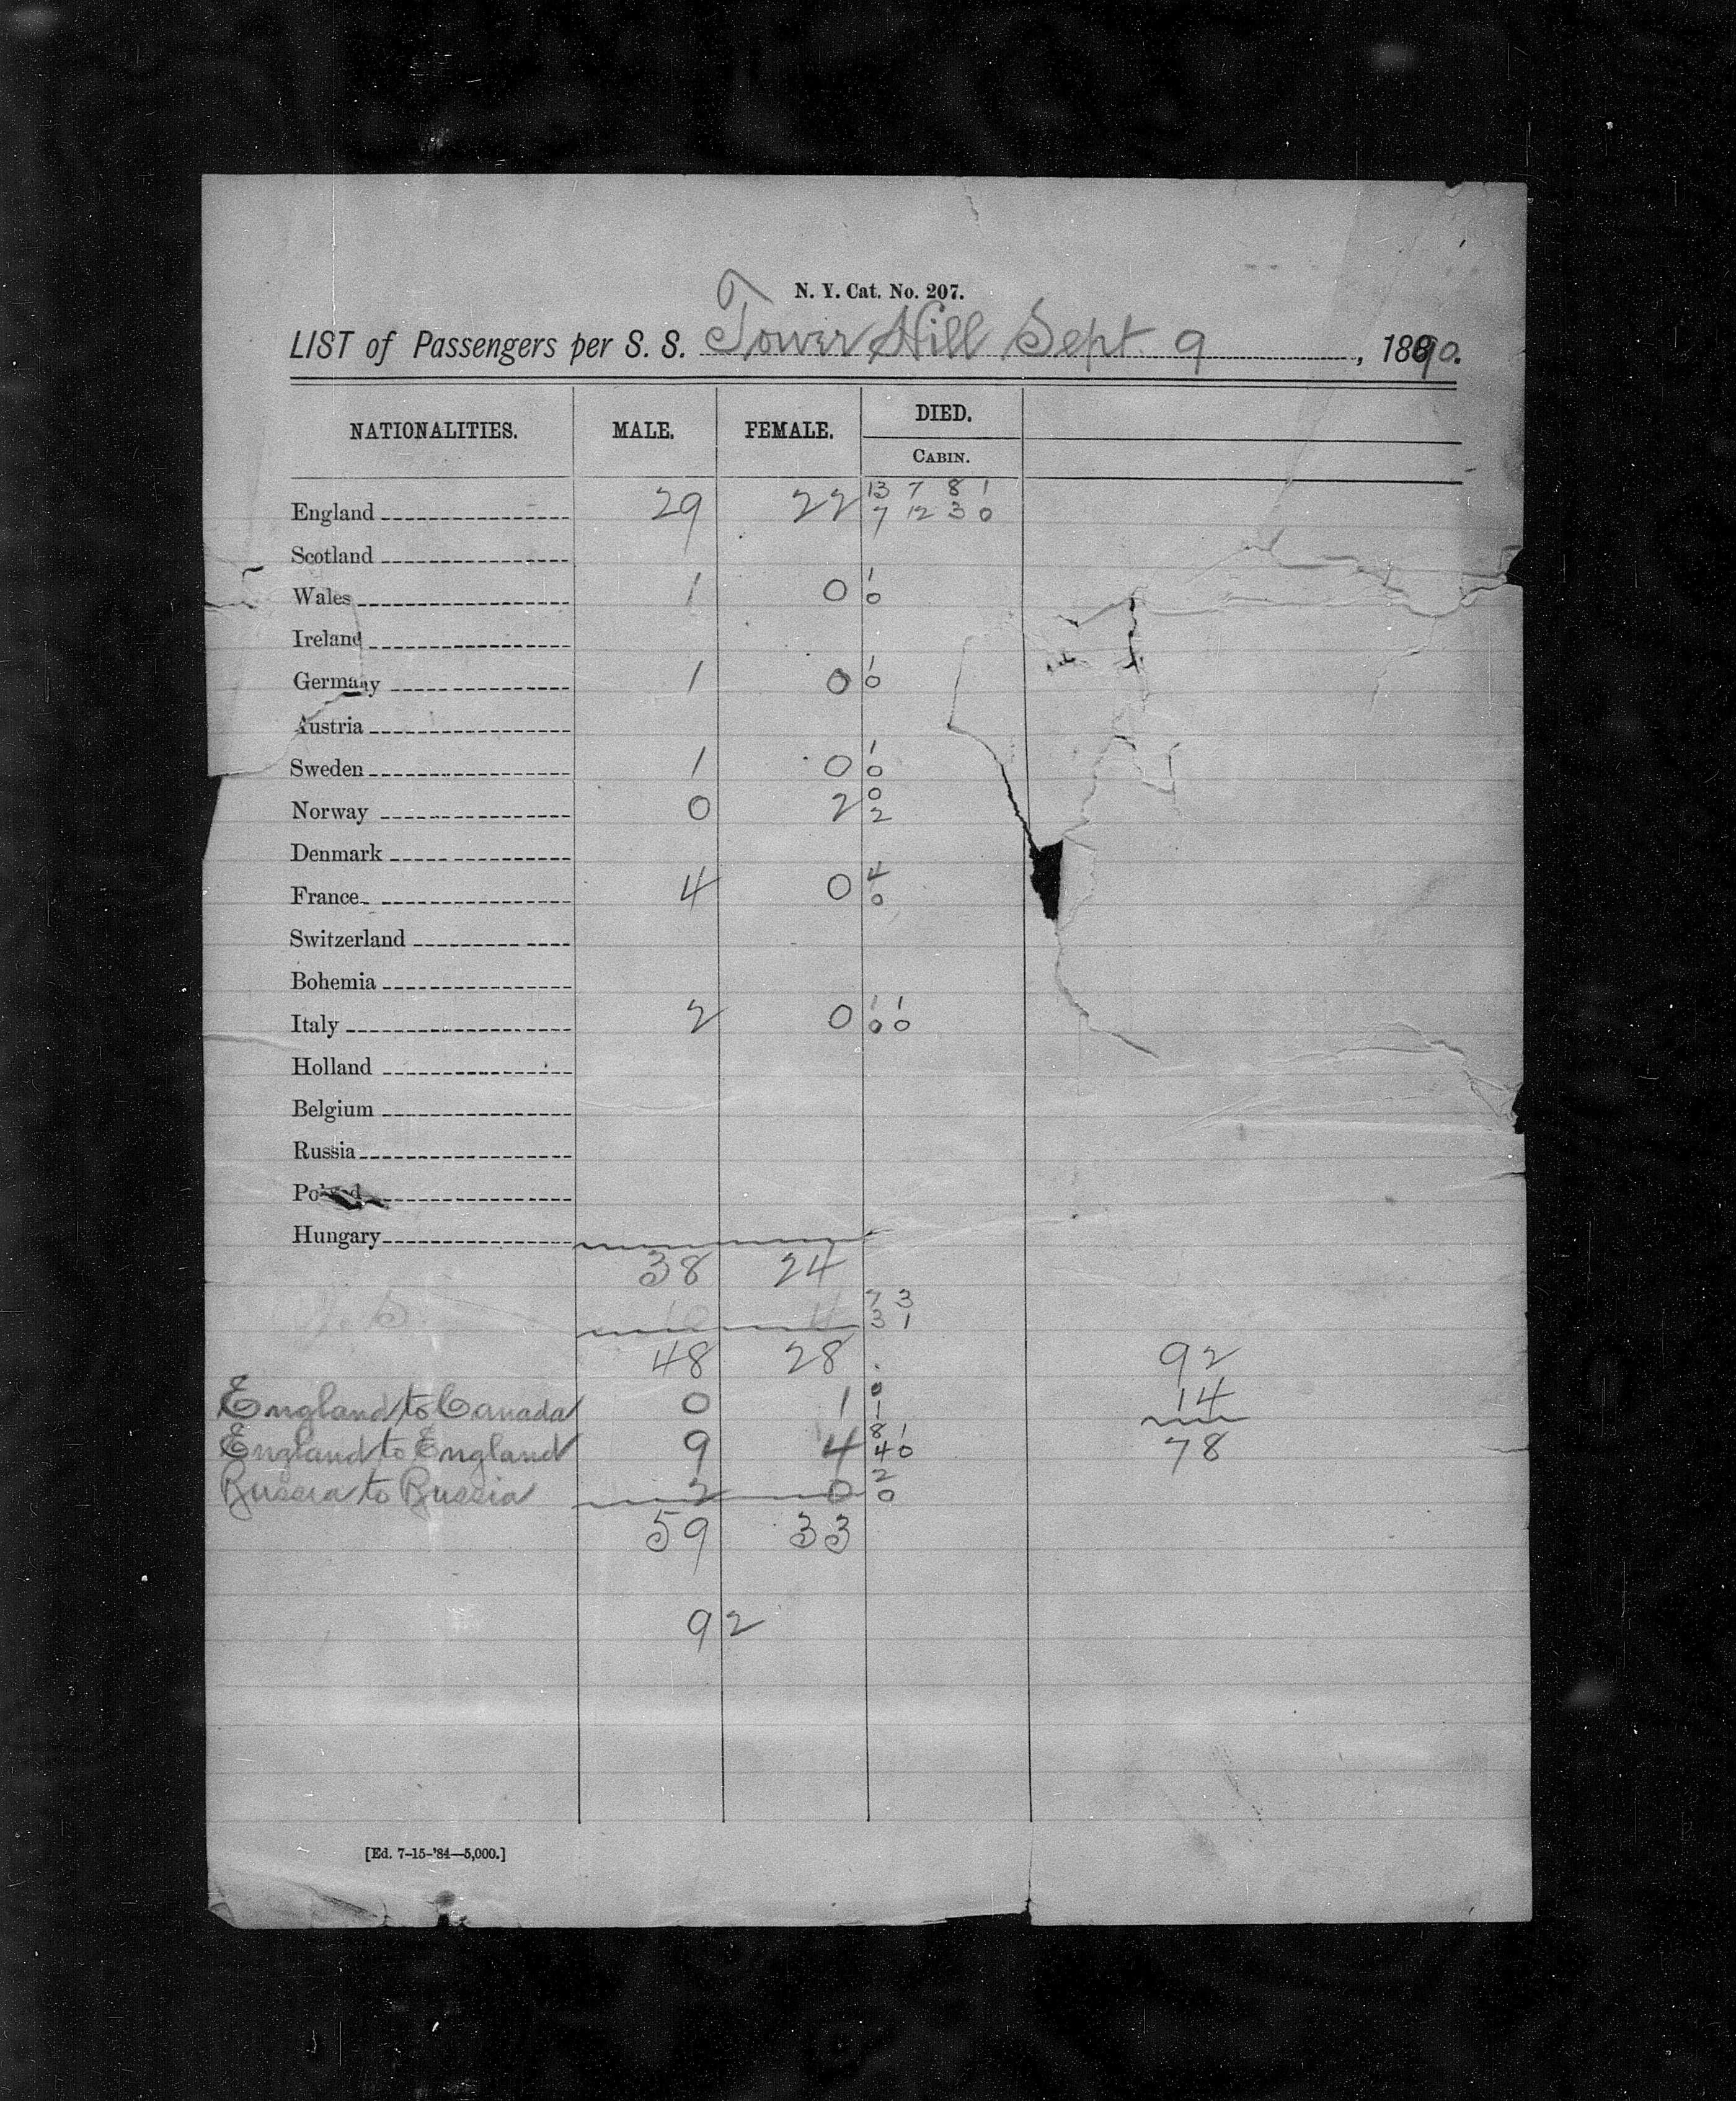 N. Y. Cat. No. 207.
LIST of Passengers per S. S. Tower Hill Sept. 9, 1890.
NATIONALITIES. MALE. FEMALE. DIED.
CABIN.
13 7 8 1
England 29 22 7 12 3 0
Scotland
1
Wales 1 0 0
Ireland
1
Germany 1 0 0
Austria
1
Sweden 1 0 0
0
Norway 0 2 2
Denmark
4
France 4 0 0
Switzerland
Bohemia
1 1
Italy 2 0 0 0
Holland
Belgium
Russia
Poland
Hungary
38 24
7 3
U. S. 10 4 3 1
48 28 92
0 14
England to Canada 0 1 1
8 1
England to England 9 4 4 0 78
2
Russia to Russia 2 0 0
59 33
92
[Ed. 7-15-'84—5,000.]